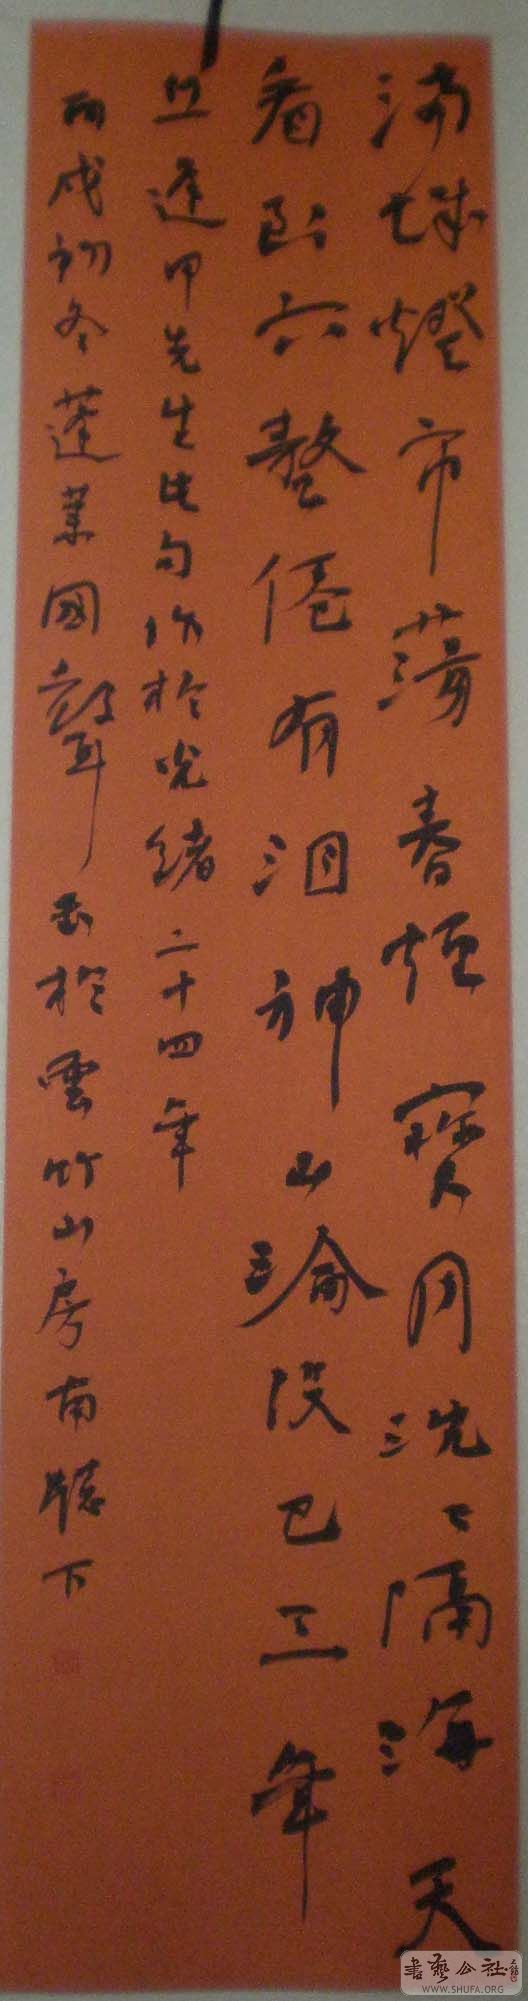 满城燈市蕩春烟寶月沈〻隔海天
看到六鰲倦有泪神山淪没已三年
丘逢甲先生此句作於光绪二十四年
丙戌初冬蓬莱國聲書於雲竹山房南牕下
書藝公社
WWW.SHUFA.ORG